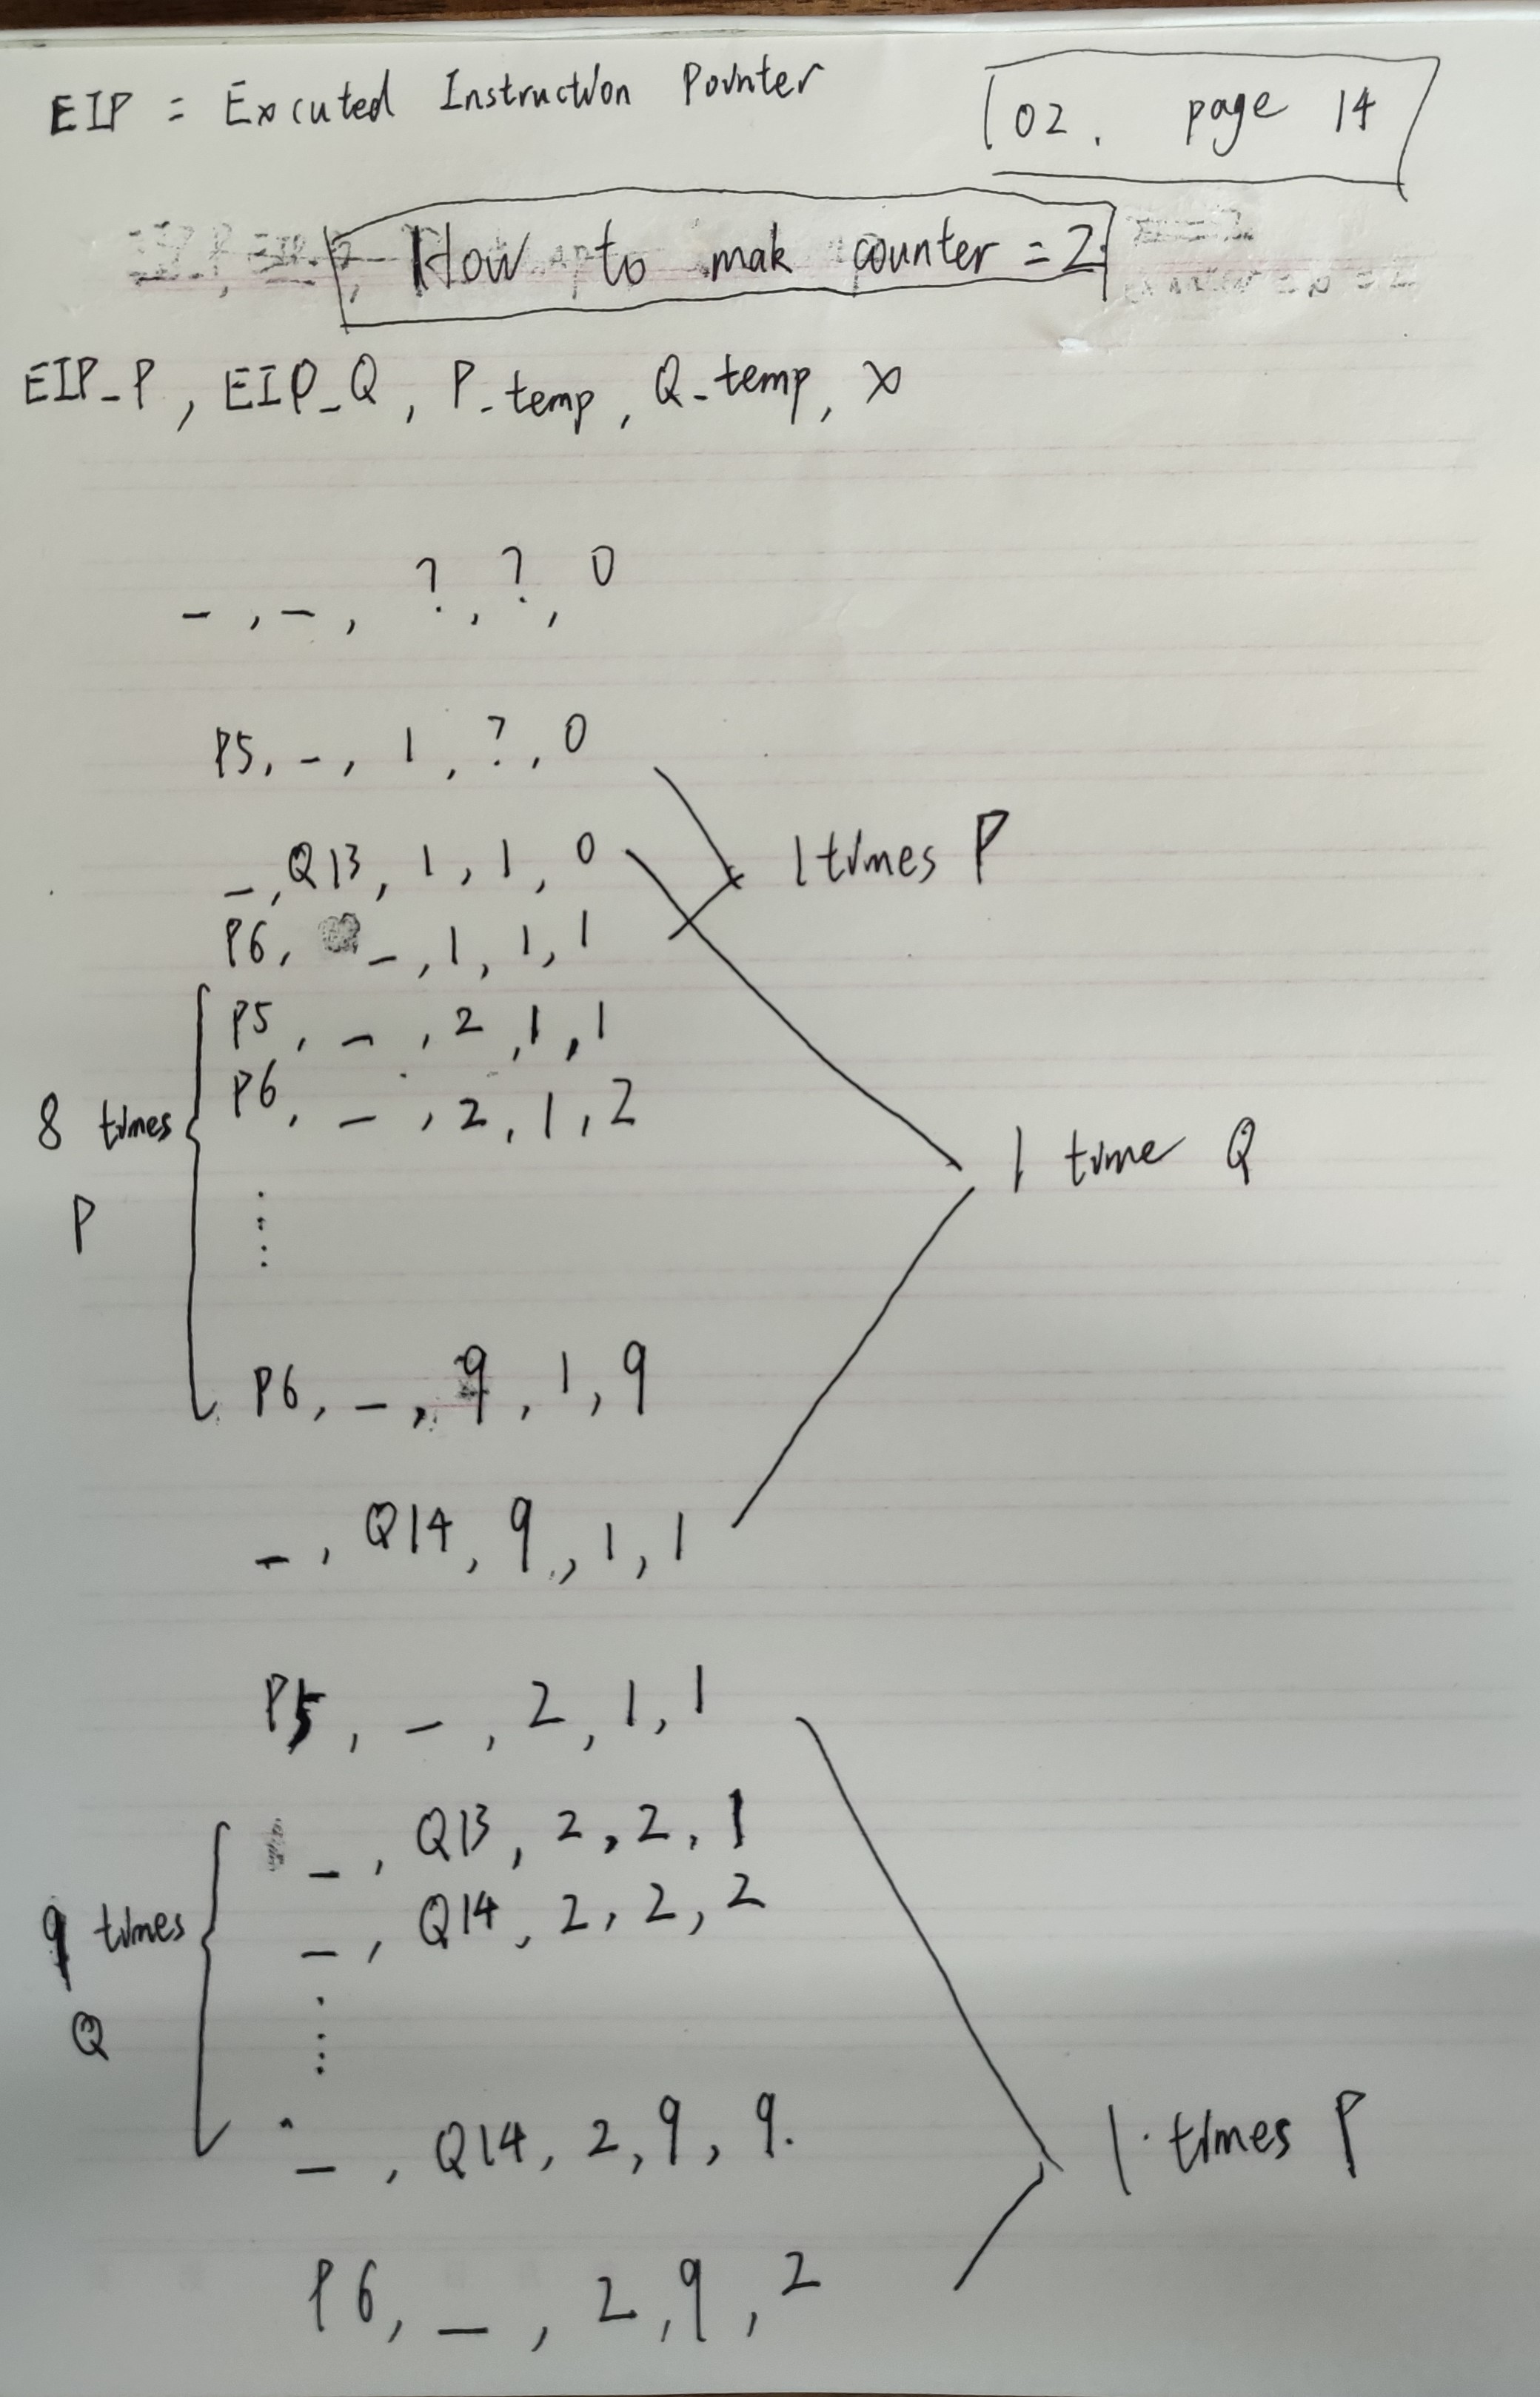 EIP = Excuted Instruction Pointer
02. page 14
How to mak counter = 2
EIP_P, EIP_Q, P_temp, Q_temp, x
_, _, ?, ?, 0
P5, _, 1, ?, 0
_, Q13, 1, 1, 0
1 times P
P6, _, 1, 1, 1
P5, _, 2, 1, 1
P6, _, 2, 1, 2
8 times
P
1 time Q
P6, _, 9, 1, 9
_, Q14, 9, 1, 1
P5, _, 2, 1, 1
_, Q13, 2, 2, 1
_, Q14, 2, 2, 2
9 times
Q
_, Q14, 2, 9, 9.
1 times P
P6, _, 2, 9, 2